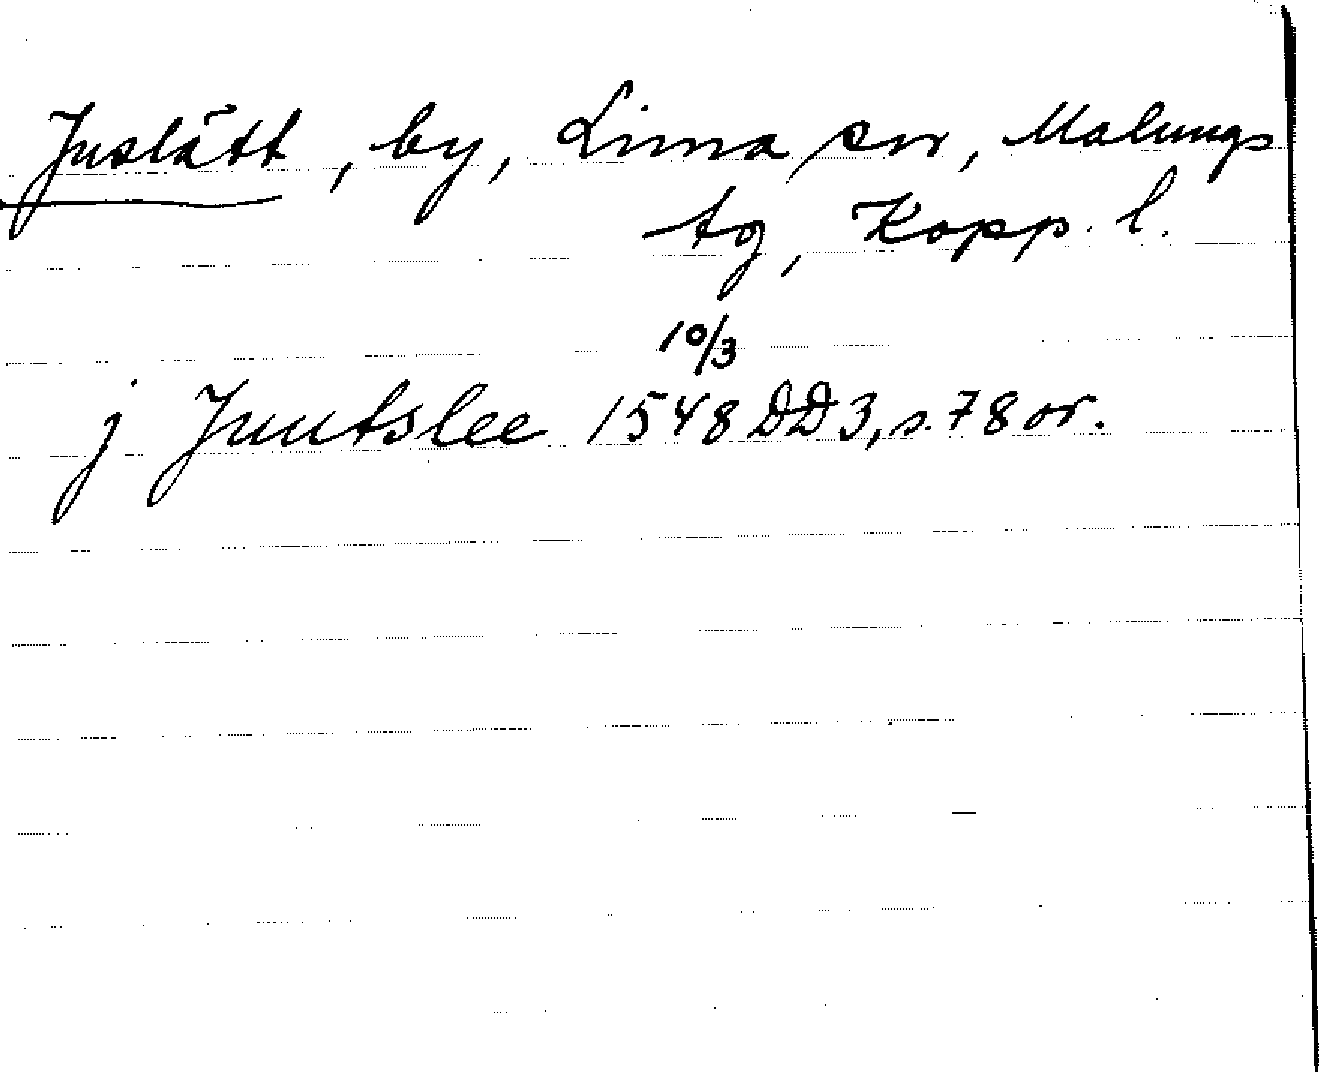 Juslätt, by, Lima sn, Malungs
tg, Kopp. l.
10/3
j Juutslee 1548 DD3, s. 78 or.